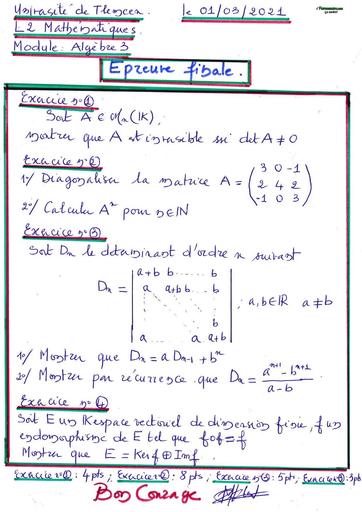 Université de Tlemcen. le 01/03/2021
L2 Mathématiques.
Module: Algèbre 3
Epreuve finale.
Exercice n°①
Soit A ∈ Mn(IK),
montrer que A est inversible ssi det A ≠ 0
Exercice n°②
1°/ Diagonaliser la matrice A = (3 0 -1
2 4 2
-1 0 3)
2°/ Calculer Aⁿ pour n∈IN
Exercice n°③
Soit Dn le déterminant d'ordre n suivant
Dn = | a+b b ...... b
a a+b b ... b
b
a ... a a+b | ; a,b∈IR a≠b
1°/ Montrer que Dn = a Dn-1 + bⁿ
2°/ Montrer par récurrence que Dn = (aⁿ⁺¹ - bⁿ⁺¹)/(a-b)
Exercice n°④
Soit E un IK espace vectoriel de dimension finie, f un
endomorphisme de E tel que fof=f
Montrer que E = Kerf ⊕ Imf
Exercice①: 4pts, Exercice②: 8pts, Exercice n°③: 5pts, Exercice n°④: 3pts
Bon Courage